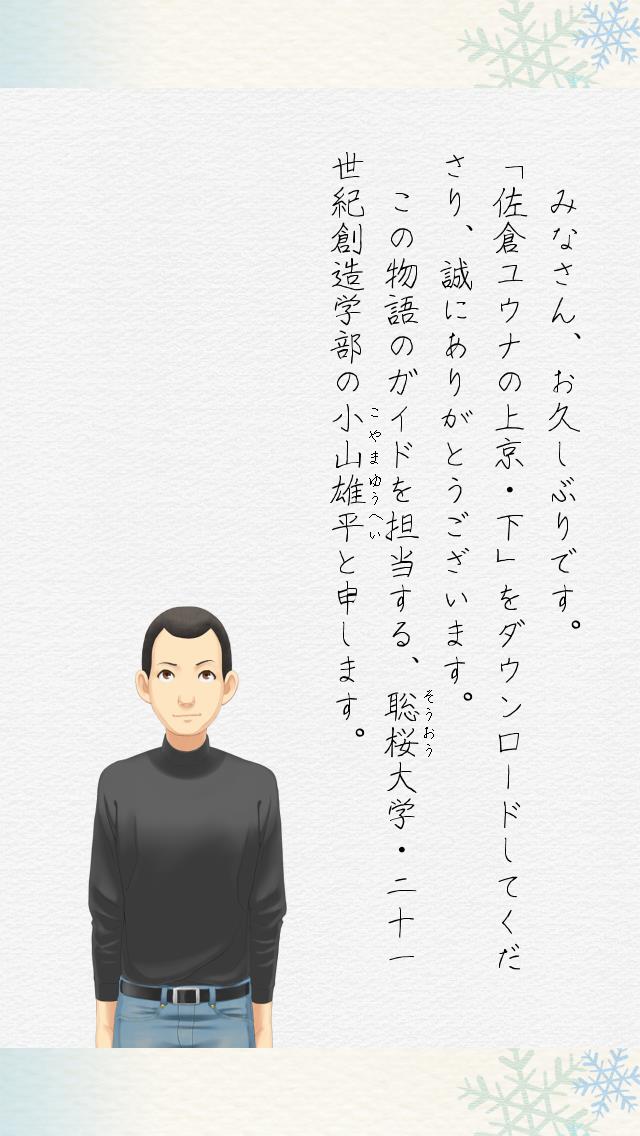 みなさん、お久しぶりです。
「佐倉ユウナの上京・下」をダウンロードしてくだ
さり、誠にありがとうございます。
この物語のガイドを担当する、聡桜大学・二十一
そうおう
世紀創造学部の小山雄平と申します。
こやまゆうへい